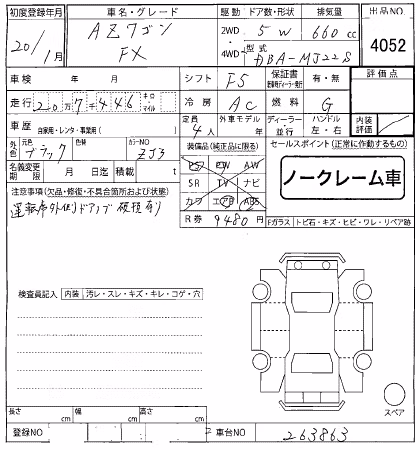 初度登録年月 車名・グレード 駆動 ドア数・形状 排気量 出品NO
20/1月 AZワゴン FX 2WD 4WD 5 W 660cc 4052
型式 DBA-MJ22S
車検 年 月 シフト F5 保証書 有・無 評価点
走行 207446 キロ・マイル 冷房 AC 燃料 G
車歴 自家用・レンタ・事業用( ) 定員 4人 外車モデル 年 ディーラー・並行 ハンドル 左・右 内装評価
外色 元色 ブラック 色替 カラーNO ZJ3 装備品(純正品に限る) セールスポイント(正常に作動するもの)
名義変更期限 月 日迄 積載 t PS PW AW
SR TV ナビ
カワ エアB ABS
ノークレーム車
注意事項(欠品・修復・不具合箇所および状態)
運転席外側ドアノブ破損有り
R券 9480円
Fガラス トビ石・キズ・ヒビ・ワレ・リペア跡
検査員記入 内装 汚レ・スレ・キズ・キレ・コゲ・穴
スペア
長さ cm 幅 cm 高さ cm
登録NO 車台NO 263863